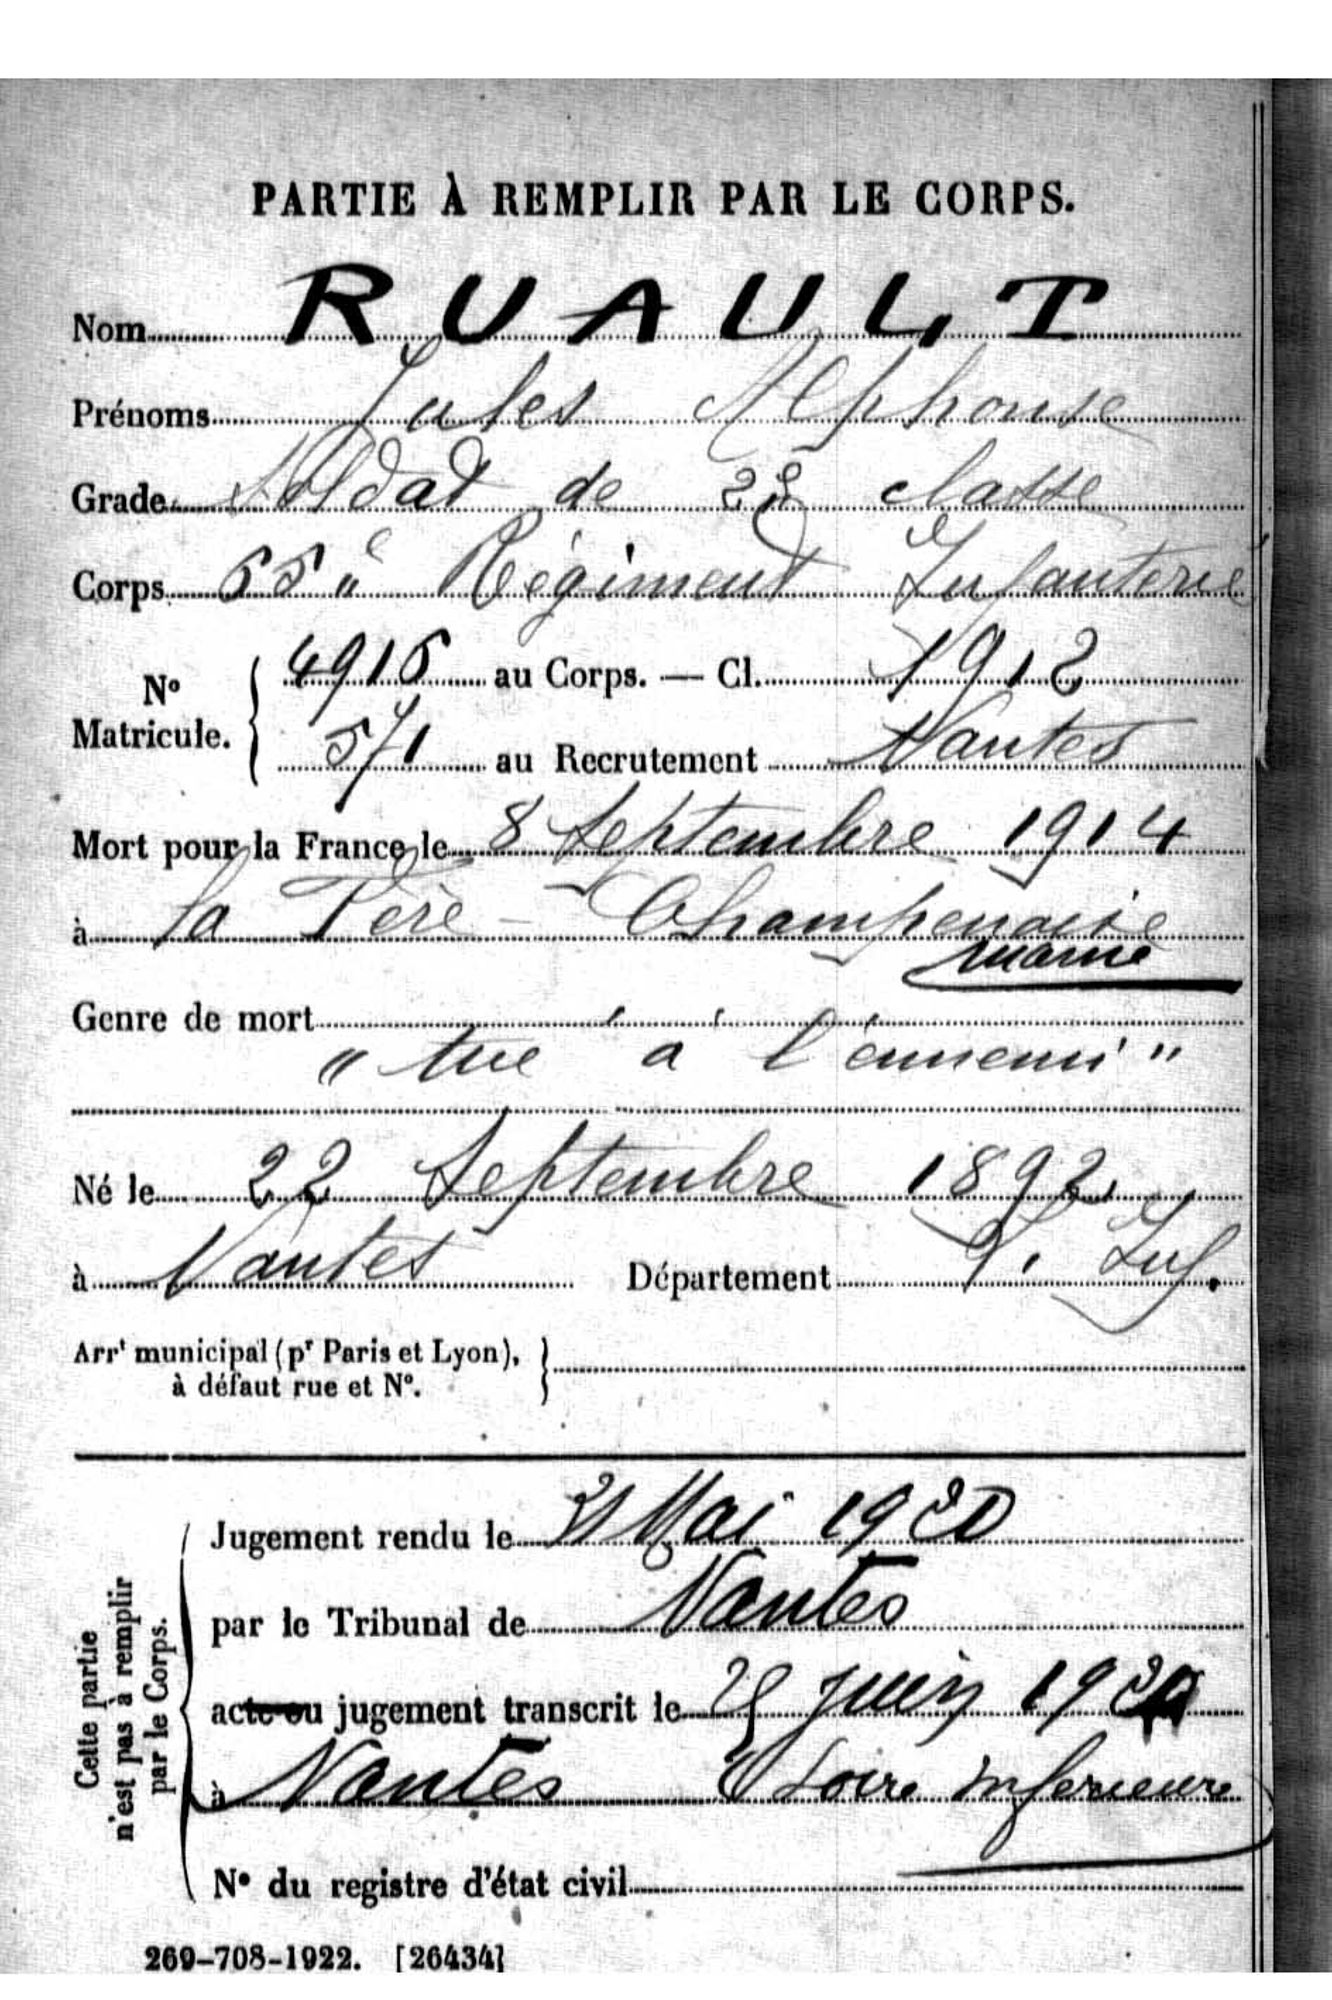 PARTIE À REMPLIR PAR LE CORPS.
Nom RUAULT
Prénoms Jules Alphonse
Grade Soldat de 2e classe
Corps 65e Régiment Infanterie
No Matricule. 4916 au Corps. — Cl. 1912
571 au Recrutement Nantes
Mort pour la France le 8 Septembre 1914
à la Fère - Champenoise
Marne
Genre de mort
" tué à l'ennemi "
Né le 22 Septembre 1892
à Nantes Département L. Inf.
Arrt municipal (pr Paris et Lyon),
à défaut rue et No.
Cette partie
n'est pas à remplir
par le Corps.
Jugement rendu le Mai 1920
par le Tribunal de Nantes
acte ou jugement transcrit le juin 1920
à Nantes Loire Inferieure
No du registre d'état civil
269-708-1922. [26434]